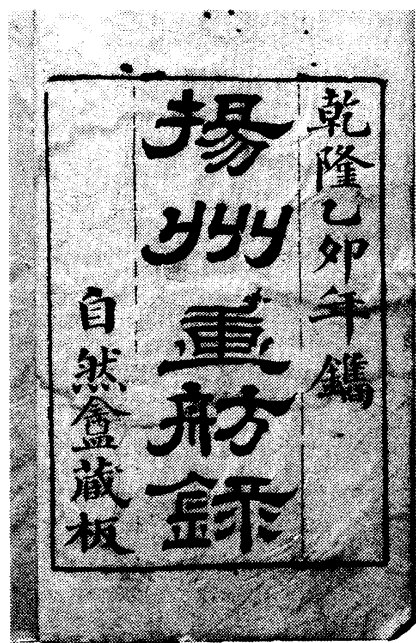 乾隆乙卯年鐫
揚州畫舫錄
自然盦藏板